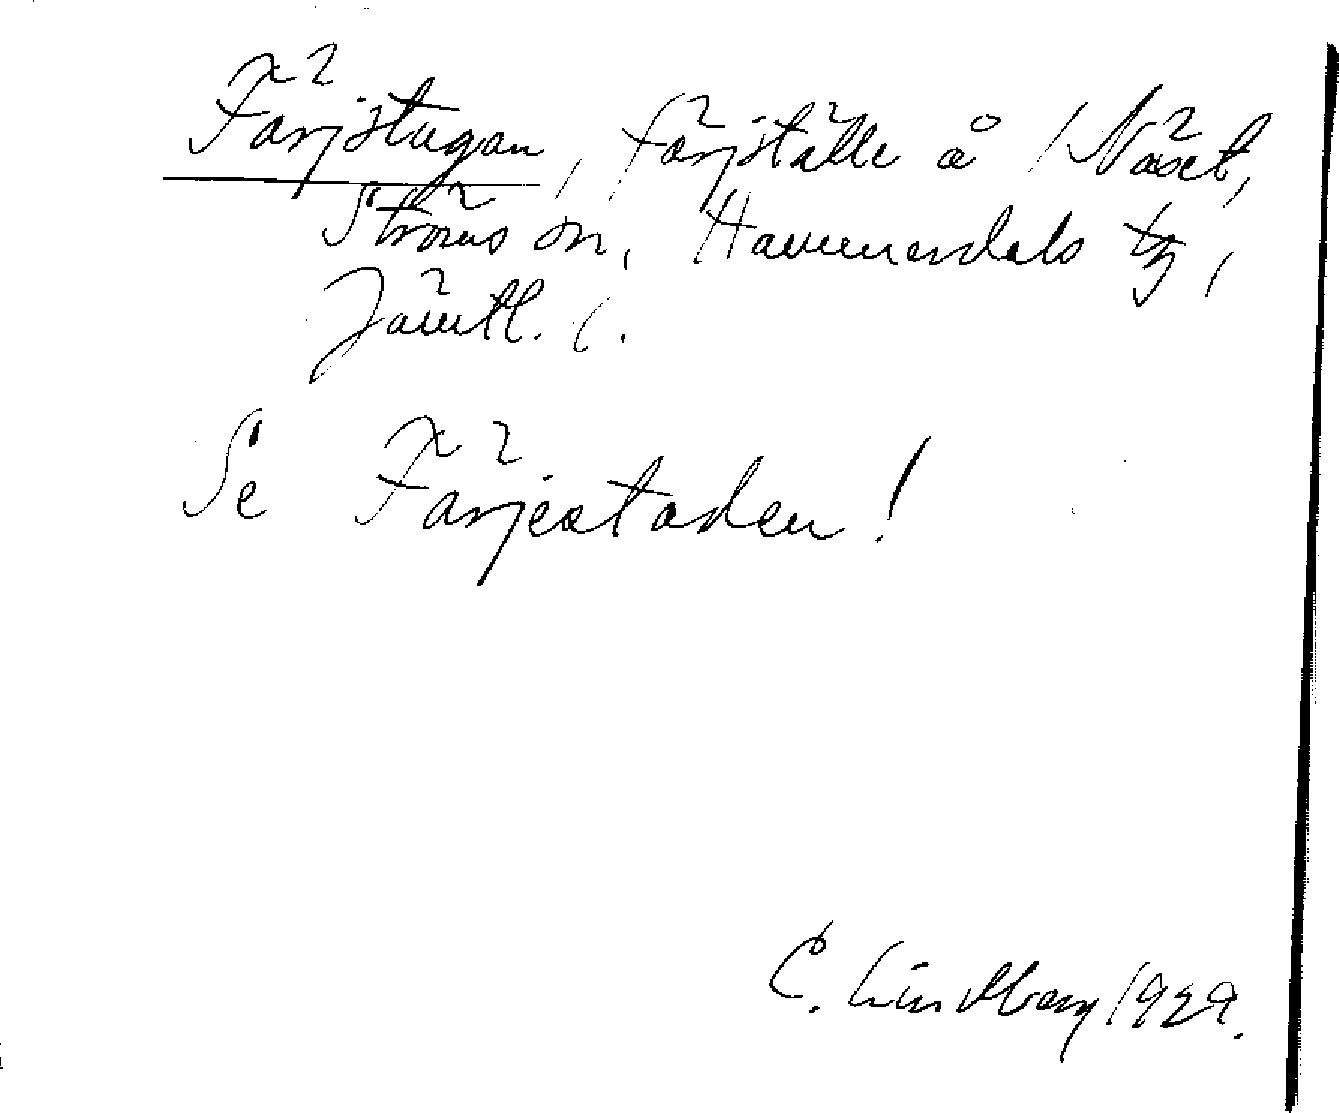 Färjstugan, färjställe å 1 Näset,
Ströms sn, Hammerdals tg,
Jämtl. l.
Se Färjestaden!
C. Lindberg 1929.